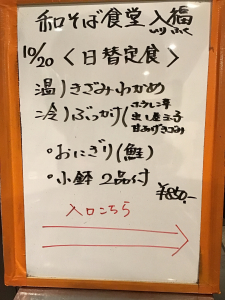 和そば食堂 入福
いり ふく
10/20 〈日替定食〉
温)きざみわかめ
冷)ぶっかけ(ホウレン草
出し巻玉子
甘あげきざみ
・おにぎり(鮭)
・小鉢 2品付
¥850-
入口こちら